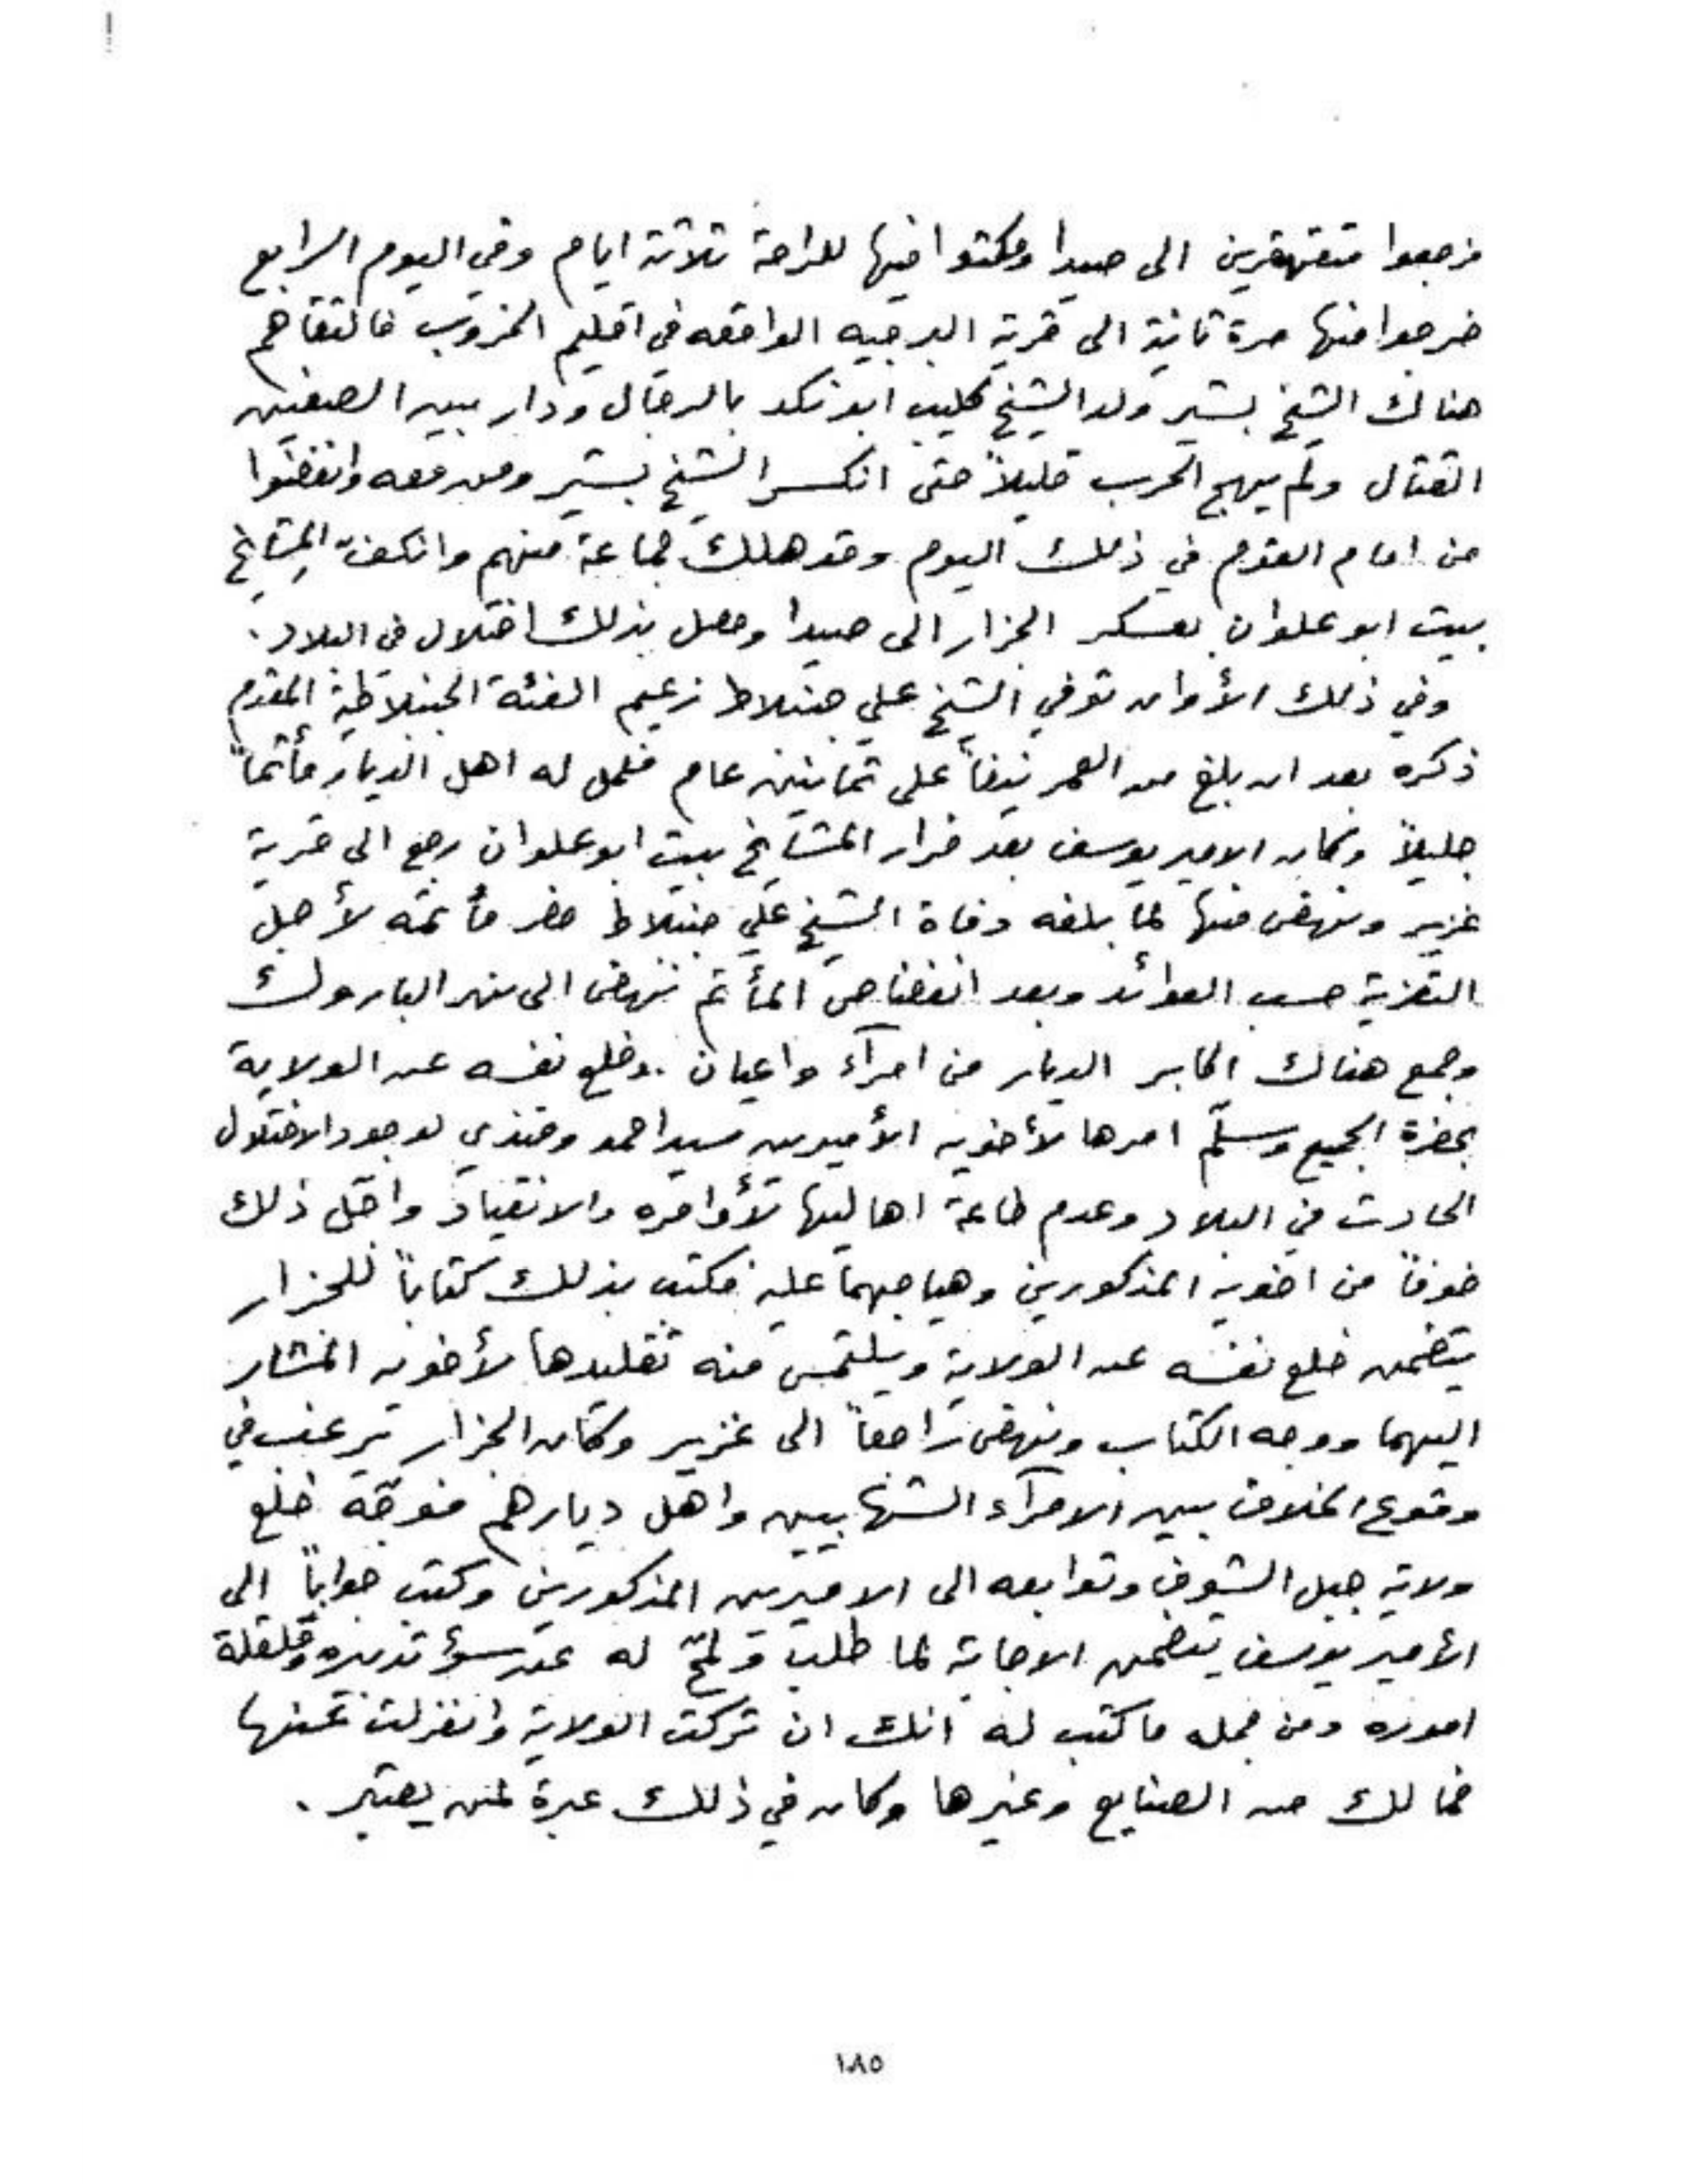 فرجعوا متقهقرين الى صيدا ومكثوا فيها للراحة ثلاثة ايام وفي اليوم الرابع
خرجوا منها مرة ثانية الى قرية البرجيه الواقعه في اقليم الخروب فالتقاهم
هناك الشيخ بشير ولد الشيخ كليب ابو نكد بالرجال ودار بين الصفين
القتال ولم يهج الحرب قليلاً حتى انكسر الشيخ بشير ومن معه وانفضوا
من امام القوم في ذلك اليوم وقد هلك جماعة منهم وانكفّ المشايخ
بيت ابو علوان بعسكر الجزار الى صيدا وحصل بذلك اختلال في البلاد.
وفي ذلك الأوان توفي الشيخ علي جنبلاط زعيم الفئة الجنبلاطية المقدم
ذكره بعد ان بلغ من العمر نيفاً على ثمانين عام فعمل له اهل الديار مأتماً
جليلاً وكان الامير يوسف بعد فرار المشايخ بيت ابو علوان رجع الى قرية
غزير ونهض منها لما بلغه وفاة الشيخ علي جنبلاط حضر مأتمه لأجل
التعزية حسب العوائد وبعد انفضاض المأتم نهض الى نهر الباروك
وجمع هناك اكابر الديار من امرآء واعيان. وخلع نفسه عن الولاية
بحضرة الجميع وسلّم امرها لأخويه الأميرين سيد احمد وفندي لوجود الاختلال
الحادث في البلاد وعدم طاعة اهاليها لأوامره والانقياد واقل ذلك
خوفاً من اخويه المذكورين وهياجهما عليه فكتب بذلك كتاباً للجزار
يتضمن خلع نفسه عن الولاية ويلتمس منه تقليدها لأخويه المشار
اليهما ووجه الكتاب ونهض راجعاً الى غزير وكان الجزار يرغب في
وقوع الخلاف بين الامرآء الشهابيين واهل ديارهم فوجّه خلع
ولاية جبل الشوف وتوابعه الى الاميرين المذكورين وكتب جواباً الى
الأمير يوسف يتضمن الاجابة لما طلب ولمّح له عن سوء تدبيره وقلقلة
اموره ومن جمله ما كتب له انك ان تركت الولاية وانعزلت عنها
فما لك من الصنايع وغيرها وكان في ذلك عبرة لمن يعتبر.
١٨٥